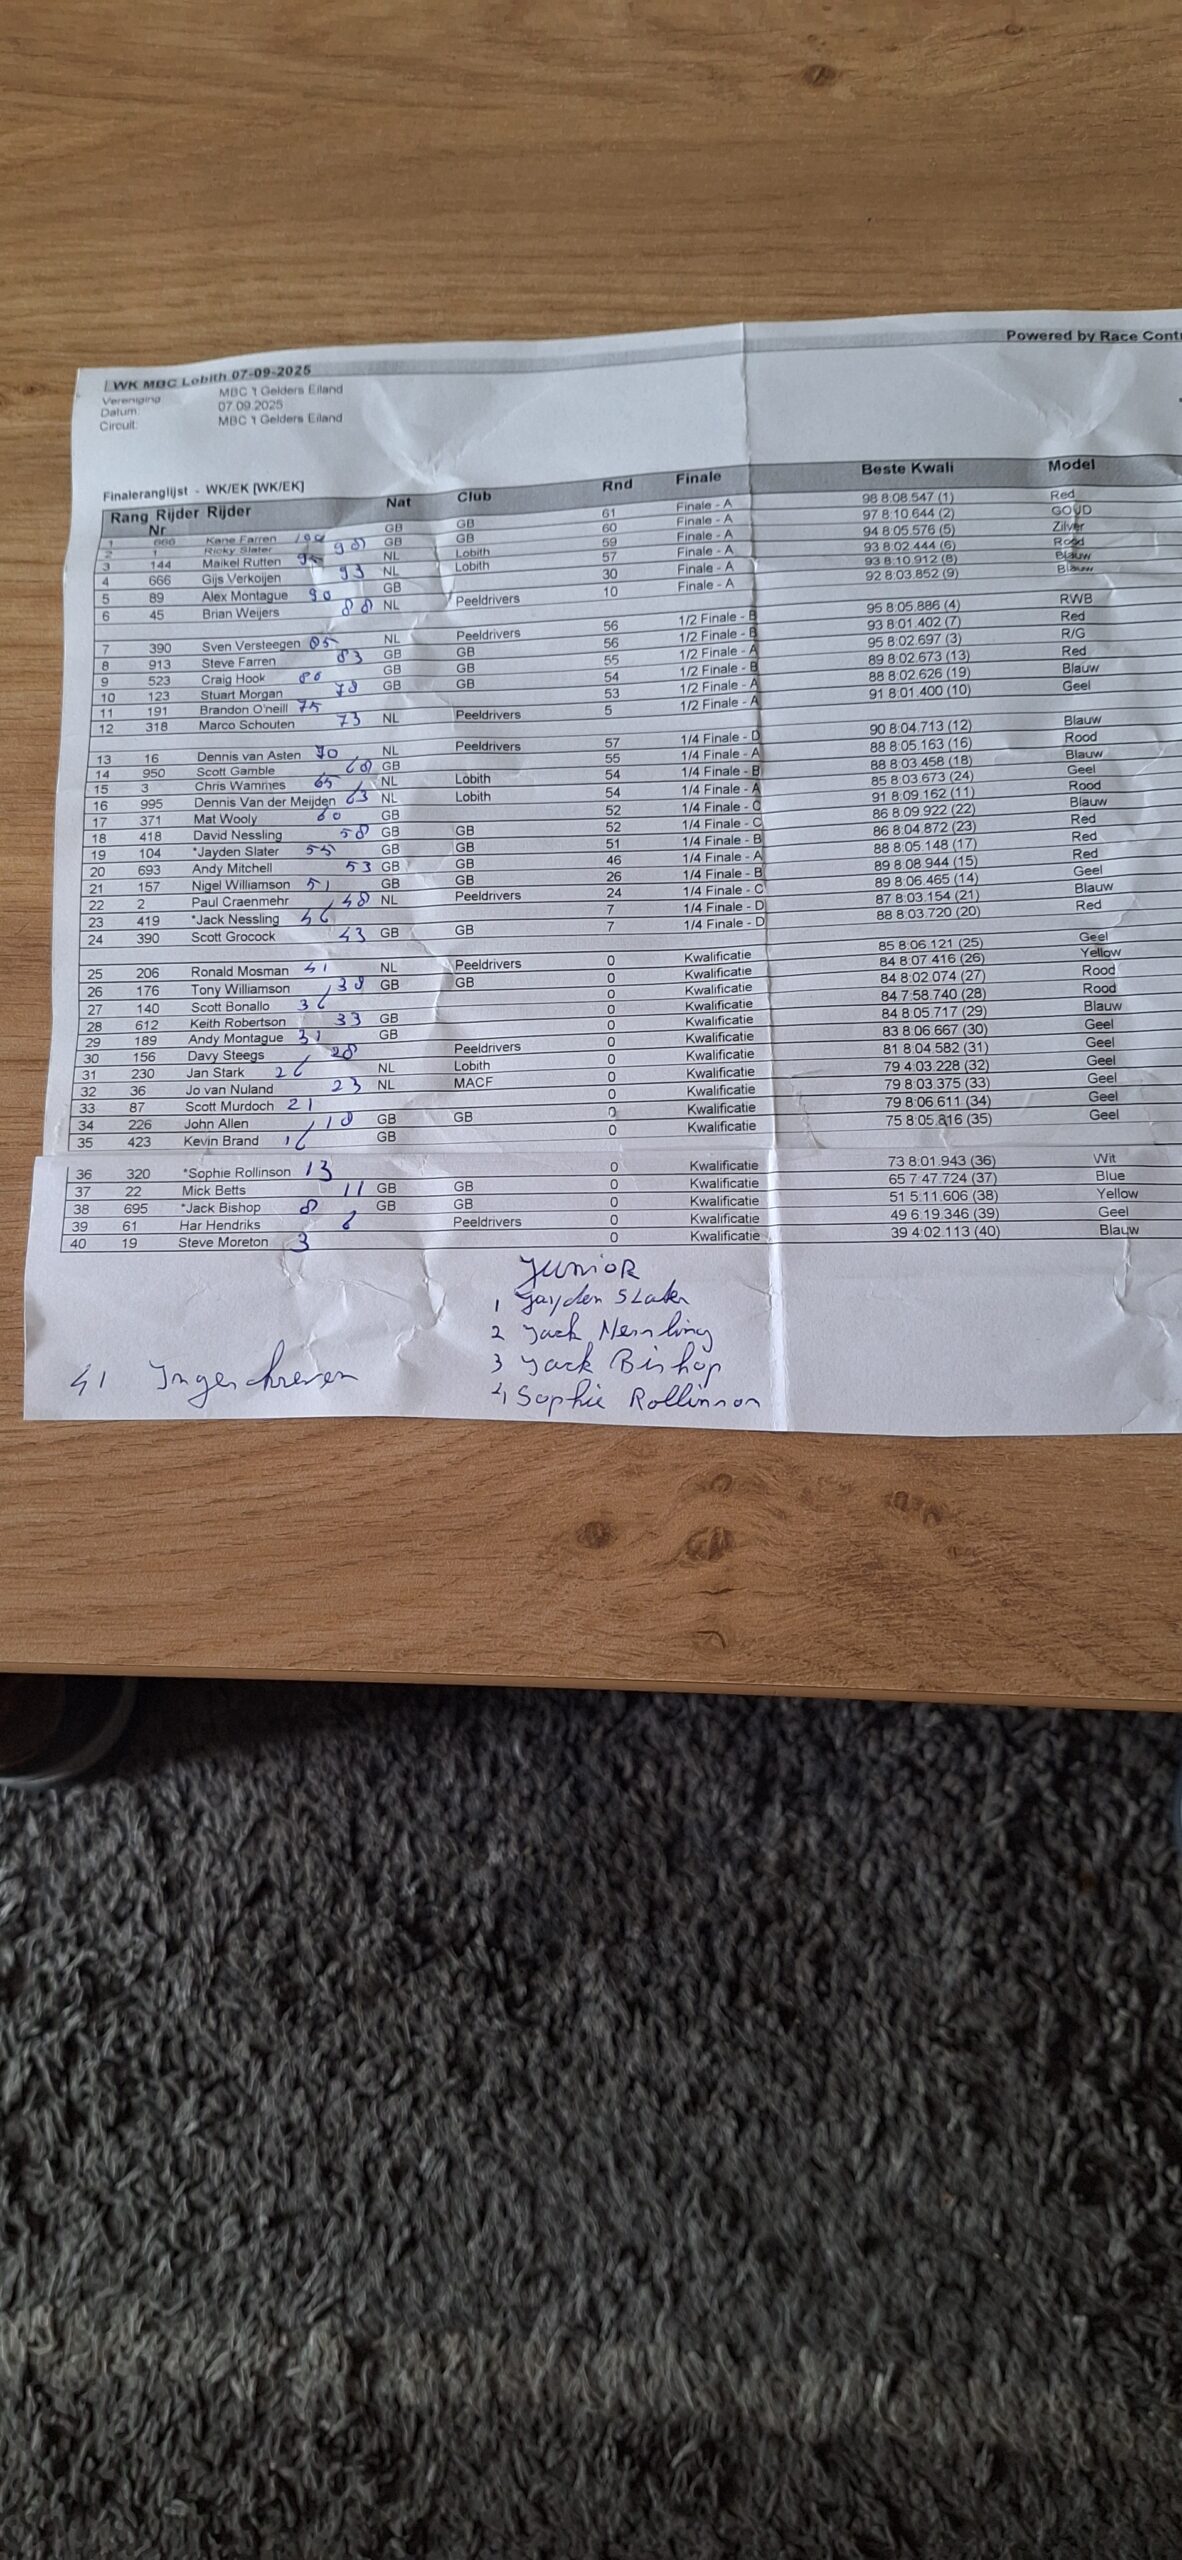 Powered by Race Cont
WK MBC Lobith 07-09-2025
Vereniging MBC 't Gelders Eiland
Datum: 07.09.2025
Circuit: MBC 't Gelders Eiland
Finaleranglijst - WK/EK [WK/EK]
Rang Rijder Nr Rijder Nat Club Rnd Finale Beste Kwali Model
1 666 Kane Farren 100 GB GB 61 Finale - A 98 8:08.547 (1) Red
2 1 Ricky Slater 98 GB GB 60 Finale - A 97 8:10.644 (2) GOUD
3 144 Maikel Rutten 95 NL Lobith 59 Finale - A 94 8:05.576 (5) Zilver
4 666 Gijs Verkoijen 93 NL Lobith 57 Finale - A 93 8:02.444 (6) Rood
5 89 Alex Montague 90 GB 30 Finale - A 93 8:10.912 (8) Blauw
6 45 Brian Weijers 88 NL Peeldrivers 10 Finale - A 92 8:03.852 (9) Blauw
7 390 Sven Versteegen 85 NL Peeldrivers 56 1/2 Finale - B 95 8:05.886 (4) RWB
8 913 Steve Farren 83 GB GB 56 1/2 Finale - B 93 8:01.402 (7) Red
9 523 Craig Hook 80 GB GB 55 1/2 Finale - A 95 8:02.697 (3) R/G
10 123 Stuart Morgan 78 GB GB 54 1/2 Finale - B 89 8:02.673 (13) Red
11 191 Brandon O'neill 75 53 1/2 Finale - A 88 8:02.626 (19) Blauw
12 318 Marco Schouten 73 NL Peeldrivers 5 1/2 Finale - A 91 8:01.400 (10) Geel
13 16 Dennis van Asten 70 NL Peeldrivers 57 1/4 Finale - D 90 8:04.713 (12) Blauw
14 950 Scott Gamble 68 GB 55 1/4 Finale - A 88 8:05.163 (16) Rood
15 3 Chris Wammes 65 NL Lobith 54 1/4 Finale - B 88 8:03.458 (18) Blauw
16 995 Dennis Van der Meijden 63 NL Lobith 54 1/4 Finale - A 85 8:03.673 (24) Geel
17 371 Mat Wooly 60 GB 52 1/4 Finale - C 91 8:09.162 (11) Rood
18 418 David Nessling 58 GB GB 52 1/4 Finale - C 86 8:09.922 (22) Blauw
19 104 *Jayden Slater 55 GB GB 51 1/4 Finale - B 86 8:04.872 (23) Red
20 693 Andy Mitchell 53 GB GB 46 1/4 Finale - A 88 8:05.148 (17) Red
21 157 Nigel Williamson 51 GB GB 26 1/4 Finale - B 89 8:08.944 (15) Red
22 2 Paul Craenmehr 48 NL Peeldrivers 24 1/4 Finale - C 89 8:06.465 (14) Geel
23 419 *Jack Nessling 46 7 1/4 Finale - D 87 8:03.154 (21) Blauw
24 390 Scott Grocock 43 GB GB 7 1/4 Finale - D 88 8:03.720 (20) Red
25 206 Ronald Mosman 41 NL Peeldrivers 0 Kwalificatie 85 8:06.121 (25) Geel
26 176 Tony Williamson 38 GB GB 0 Kwalificatie 84 8:07.416 (26) Yellow
27 140 Scott Bonallo 36 0 Kwalificatie 84 8:02.074 (27) Rood
28 612 Keith Robertson 33 GB 0 Kwalificatie 84 7:58.740 (28) Rood
29 189 Andy Montague 31 GB 0 Kwalificatie 84 8:05.717 (29) Blauw
30 156 Davy Steegs 28 Peeldrivers 0 Kwalificatie 83 8:06.667 (30) Geel
31 230 Jan Stark 26 NL Lobith 0 Kwalificatie 81 8:04.582 (31) Geel
32 36 Jo van Nuland 23 NL MACF 0 Kwalificatie 79 4:03.228 (32) Geel
33 87 Scott Murdoch 21 0 Kwalificatie 79 8:03.375 (33) Geel
34 226 John Allen 18 GB GB 0 Kwalificatie 79 8:06.611 (34) Geel
35 423 Kevin Brand 16 GB 0 Kwalificatie 75 8:05.816 (35) Geel
36 320 *Sophie Rollinson 13 0 Kwalificatie 73 8:01.943 (36) Wit
37 22 Mick Betts 11 GB GB 0 Kwalificatie 65 7:47.724 (37) Blue
38 695 *Jack Bishop 8 GB GB 0 Kwalificatie 51 5:11.606 (38) Yellow
39 61 Har Hendriks 6 Peeldrivers 0 Kwalificatie 49 6:19.346 (39) Geel
40 19 Steve Moreton 3 0 Kwalificatie 39 4:02.113 (40) Blauw
JUNIOR
1 Jayden Slater
2 Jack Nessling
3 Jack Bishop
4 Sophie Rollinson
41 Ingeschreven